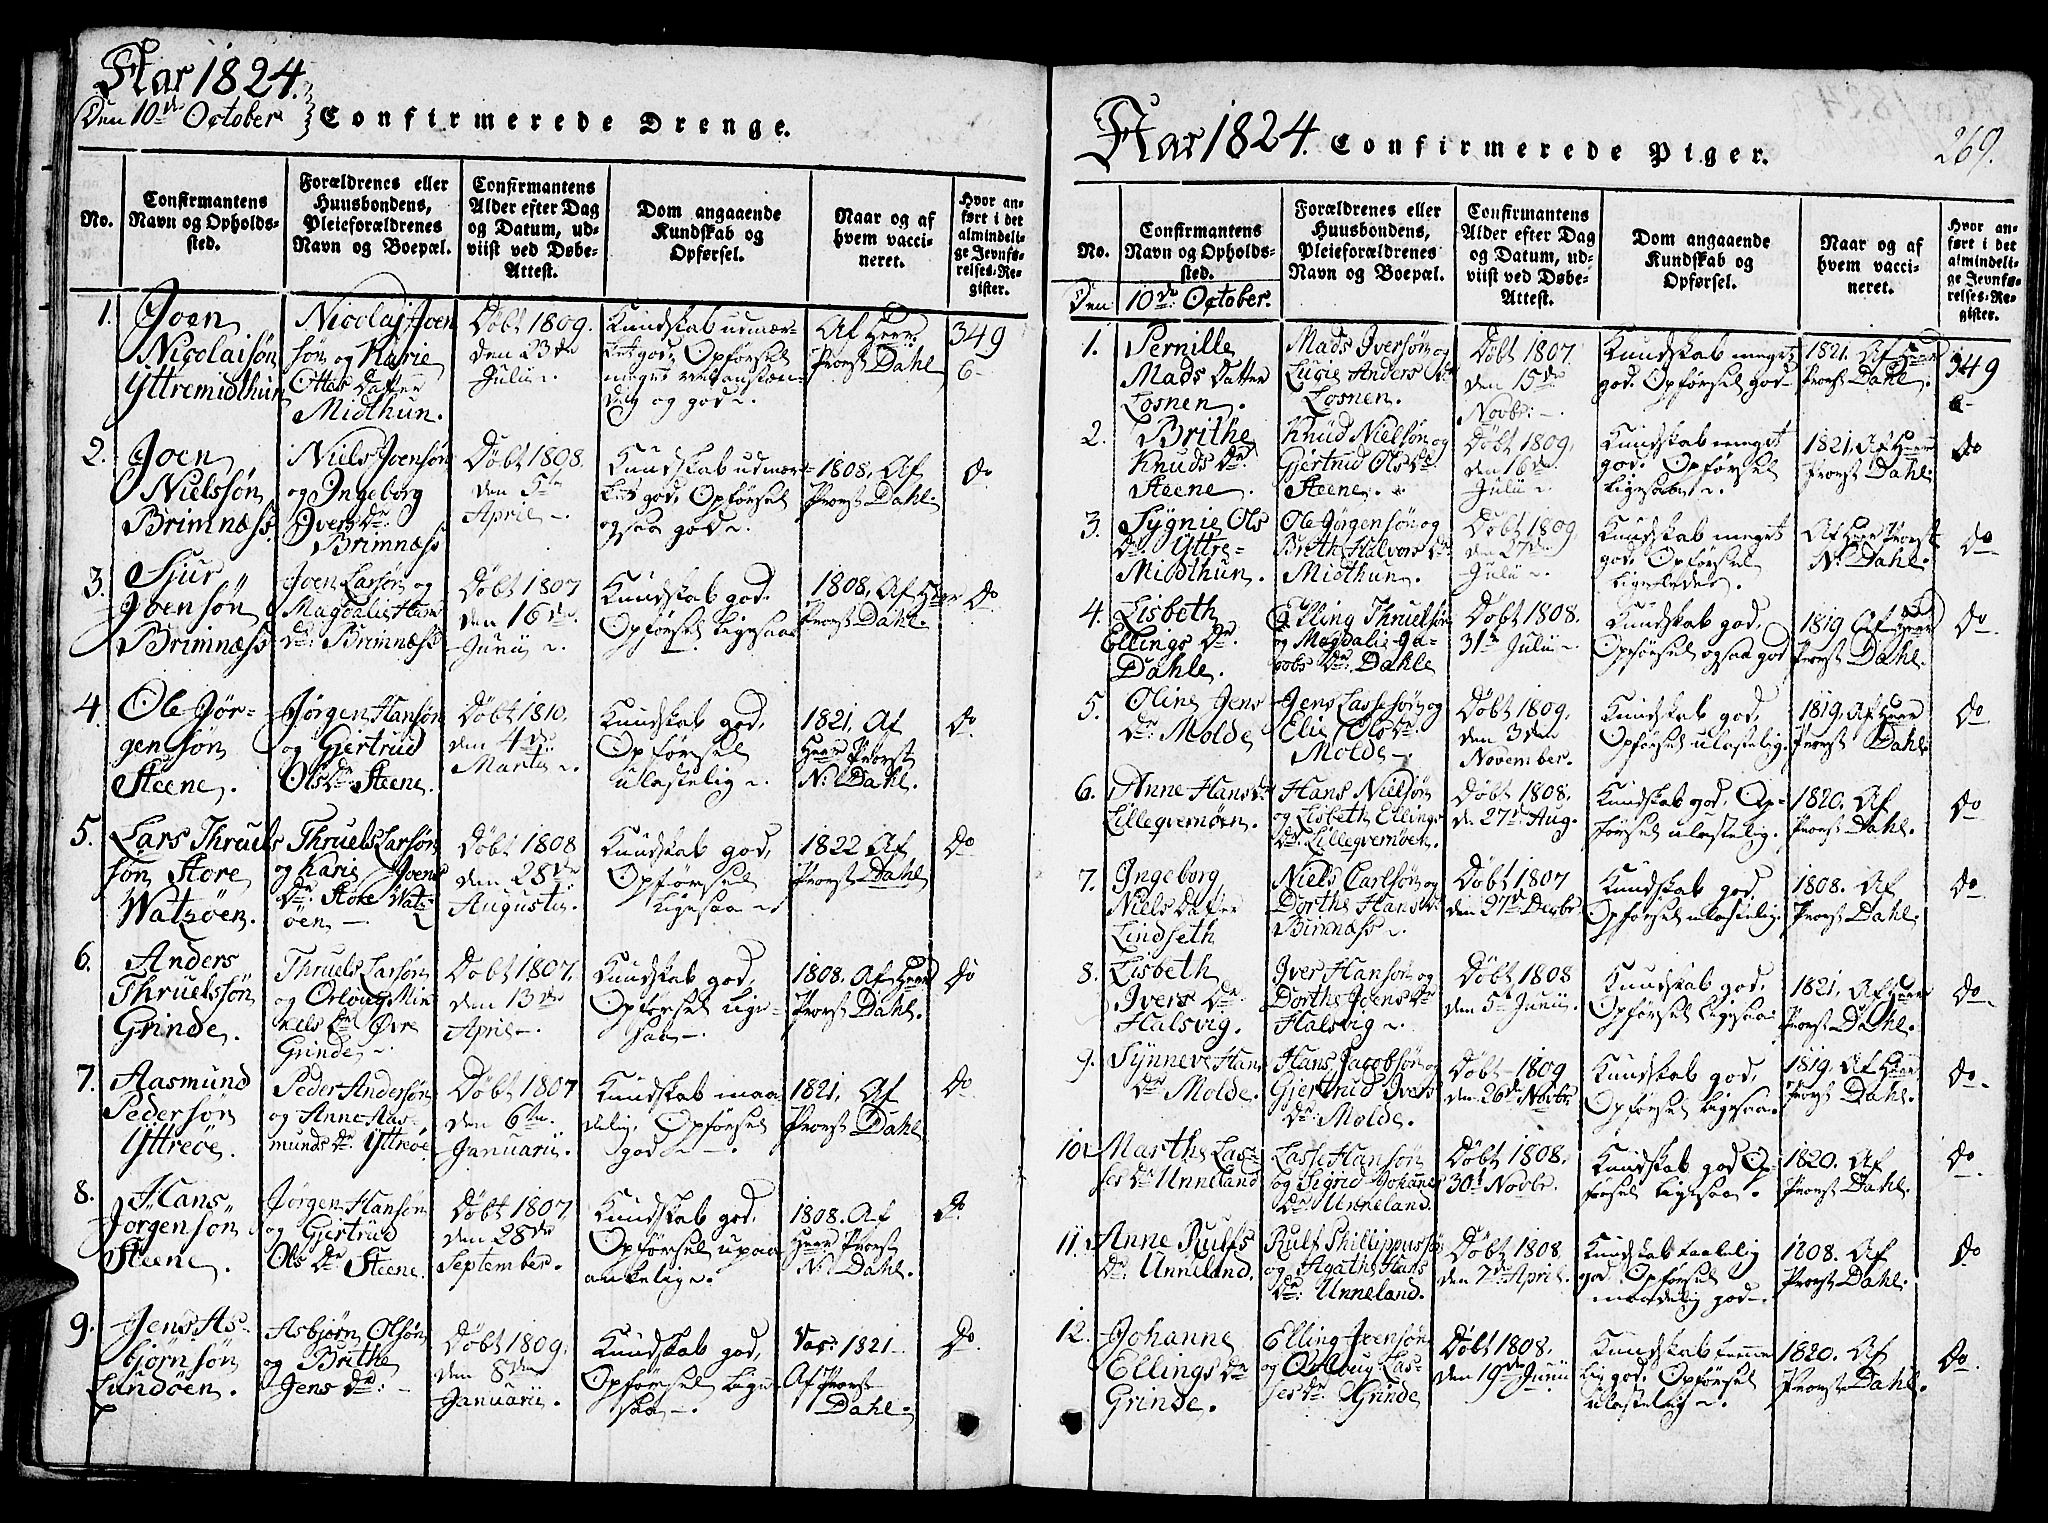 Aar 1824.
Den 10de October
Confirmerede Drenge.
No.
Confirmantens
Navn og Opholds-
sted.
Forældrenes eller
Huusbondens,
Pleieforældrenes
Navn og Boepæl.
Confirmantens
Alder efter Dag
og Datum, ud-
viist ved Døbe-
Attest.
Dom angaaende
Kundskab og
Opførsel.
Naar og af
hvem vacci-
neret.
Hvor an-
ført i det
almindeli-
ge Jevnfø-
relses-Re-
gister.
1.
Joen
Nicolaisøn
Yttremidthun
Nicolaj Joen
søn og Karie
Ottes Datter
Midthun.
Døbt 1809.
den 23de
Julii
Kundskab udmær-
ket god, Opførsel
meget vel anstæn-
dig og god
Af Herr
Provst Dahl
349
6
2.
Joen
Nielssøn
Brimnæss.
Niels Joensøn
og Ingeborg
Ivers Dr.
Brimnæss
Døbt 1808.
den 5te
April
Kundskab udmær-
ket god. Opførsel
ogsaa god
1808. Af
Provst Dahl.
Do
3.
Sjur
Joensøn
Brimnæss
Joen Larsøn og
Magdalie Hans
Dr. Brimnæss
Døbt 1807
den 16de
Junii
Kundskab god.
Opførsel ligesaa
1808, Af Herr
Provst Dahl.
Do
4.
Ole Jør-
gensøn
Steene.
Jørgen Hansøn
og Gjertrud
Ols Dr Steene.
Døbt 1810.
den 4de
Martii
Kundskab god,
Opførsel
ulastelig
1821. Af
Herr Provst
N: Dahl.
Do
5.
Lars Thruels
søn Store
Watzøen.
Thruels Larsøn
og Karie Joens
Dr. Store Watz-
øen
Døbt 1808
den 28de
Augustii.
Kundskab god,
Opførsel
ligesaa
1822 Af
Provst Dahl
Do
6.
Anders
Thruelssøn
Grinde.
Thruels Larsøn
og Orloug Min
kels Dr Øvre
Grinde
Døbt 1807.
den 13de
April
Kundskab god,
Opførsel lige-
saa
1808. Af Herr
Provst Dahl.
Do
7.
Aasmund
Pedersøn
Yttreøe.
Peder Andersøn
og Anne Aas-
munds Dr. Yttreøe
Døbt 1807
den 6te
Januarii.
Kundskab maa
delig, Opførsel
god
1821. Af
Provst Dahl
Do
8.
Hans
Jørgensøn
Steene.
Jørgen Hansøn
og Gjertrud
Ols Dr Steene.
Døbt 1807
den 28de
September.
Kundskab god.
Opførsel upaa-
ankelig.
1808. Af
Herr Provst
N: Dahl.
Do
9.
Jens As-
bjørnsøn
Lundøen.
Asbjørn Olsøn
og Brithe
Jens Dr:
Døbt 1809.
den 8de
Januarii.
Kundskab god,
Opførsel lige-
saa
Vac: 1821
Af Provst
Dahl.
Do
Aar 1824.
Confirmerede Piger.
269.
No.
Confirmantens
Navn og Opholds-
sted.
Forældrenes eller
Huusbondens,
Pleieforældrenes
Navn og Boepæl.
Confirmantens
Alder efter Dag
og Datum, ud-
viist ved Døbe-
Attest.
Dom angaaende
Kundskab og
Opførsel.
Naar og af
hvem vacci-
neret.
Hvor an-
ført i det
almindeli-
ge Jevnfø-
relses-Re-
gister.
Den 10de October.
1.
Pernille
Mads Datter
Losnen.
Mads Iversøn og
Lucie Anders Dr
Losnen.
Døbt 1807.
den 15de
Novbr.
Kundskab meget
god. Opførsel god
1821. Af Herr
Provst Dahl.
349
6
2.
Brithe
Knuds Dr
Steene.
Knud Nielsøn og
Gjertrud Ols Dr
Steene.
Døbt 1809.
den 16de
Julii
Kundskab meget
god. Opførsel
ligesaa
1821. Af Herr
Provst Dahl.
Do
3.
Sygnie Ols
Dr. Yttre-
Midthun.
Ole Jørgensøn og
Brith Halvors Dr
Midthun.
Døbt 1809
den 27de
Julii
Kundskab meget
god. Opførsel
ligeledes.
Af Herr Provst
N. Dahl.
Do
4.
Lisbeth
Ellings Dr.
Dahle.
Elling Thruelsøn
og Magdalie Ja-
cobs Dr. Dahle
Døbt 1808.
31te Julii
Kundskab god.
Opførsel ogsaa god
1819 Af Herr
Provst Dahl.
Do
5.
Oline Jens
Dr. Molde
Jens Lassesøn og
Elie Ols Dr.
Molde
Døbt 1809.
den 3den
November.
Kundskab god,
Opførsel ulastelig.
1819. Af Herr
Provst Dahl.
Do
6.
Anne Hans Dr
Lillegvernøen.
Hans Nielsøn
og Lisbeth Ellings
Dr. Lillegvernøen.
Døbt 1808.
den 27de Aug.
Kundskab god, Op-
førsel ulastelig.
1820. Af
Provst Dahl.
Do
7.
Ingeborg
Niels Datter
Lindseth
Niels Carlsøn og
Dorthe Hans Dr
Brimnæss
Døbt 1807
den 27de Decbr.
Kundskab god
Opførsel ulastelig.
1808. Af
Provst Dahl.
Do
8.
Lisbeth
Ivers Dr.
Halsvig.
Iver Hansøn og
Dorthe Joens Dr
Halsvig
Døbt 1808
den 5te Junii.
Kundskab god.
Opførsel ligesaa
1821. Af Herr
Provst Dahl.
Do
9.
Synneve Hans
Dr Molde.
Hans Jacobsøn og
Gjertrud Ivers
Dr. Molde.
Døbt 1809
den 26de Novbr
Kundskab god,
Opførsel ligesaa.
1819. Af Herr
Provst Dahl.
Do
10.
Marthe Las-
ses Dr Unneland
Lasse Hansøn
og Sigrid Johannes
Dr. Unneland.
Døbt 1808.
30te Novbr.
Kundskab god Op-
førsel ligesaa.
1820. Af
Provst Dahl.
Do
11.
Anne Rulfs
Dr. Unneland.
Rulf Phillippussøn
og Agathe Hans
Dr. Unneland.
Døbt 1808
den 7de April.
Kundskab taalelig
god. Opførsel
maadelig god.
1808. Af
Provst Dahl.
Do
12.
Johanne
Ellings Dr
Grinde.
Elling Joensøn
og Orloug Las-
ses Dr. Grinde
Døbt 1808.
den 19de Junii
Kundskab temme
lig god. Opførsel
ulastelig
1820. Af
Provst Dahl.
Do